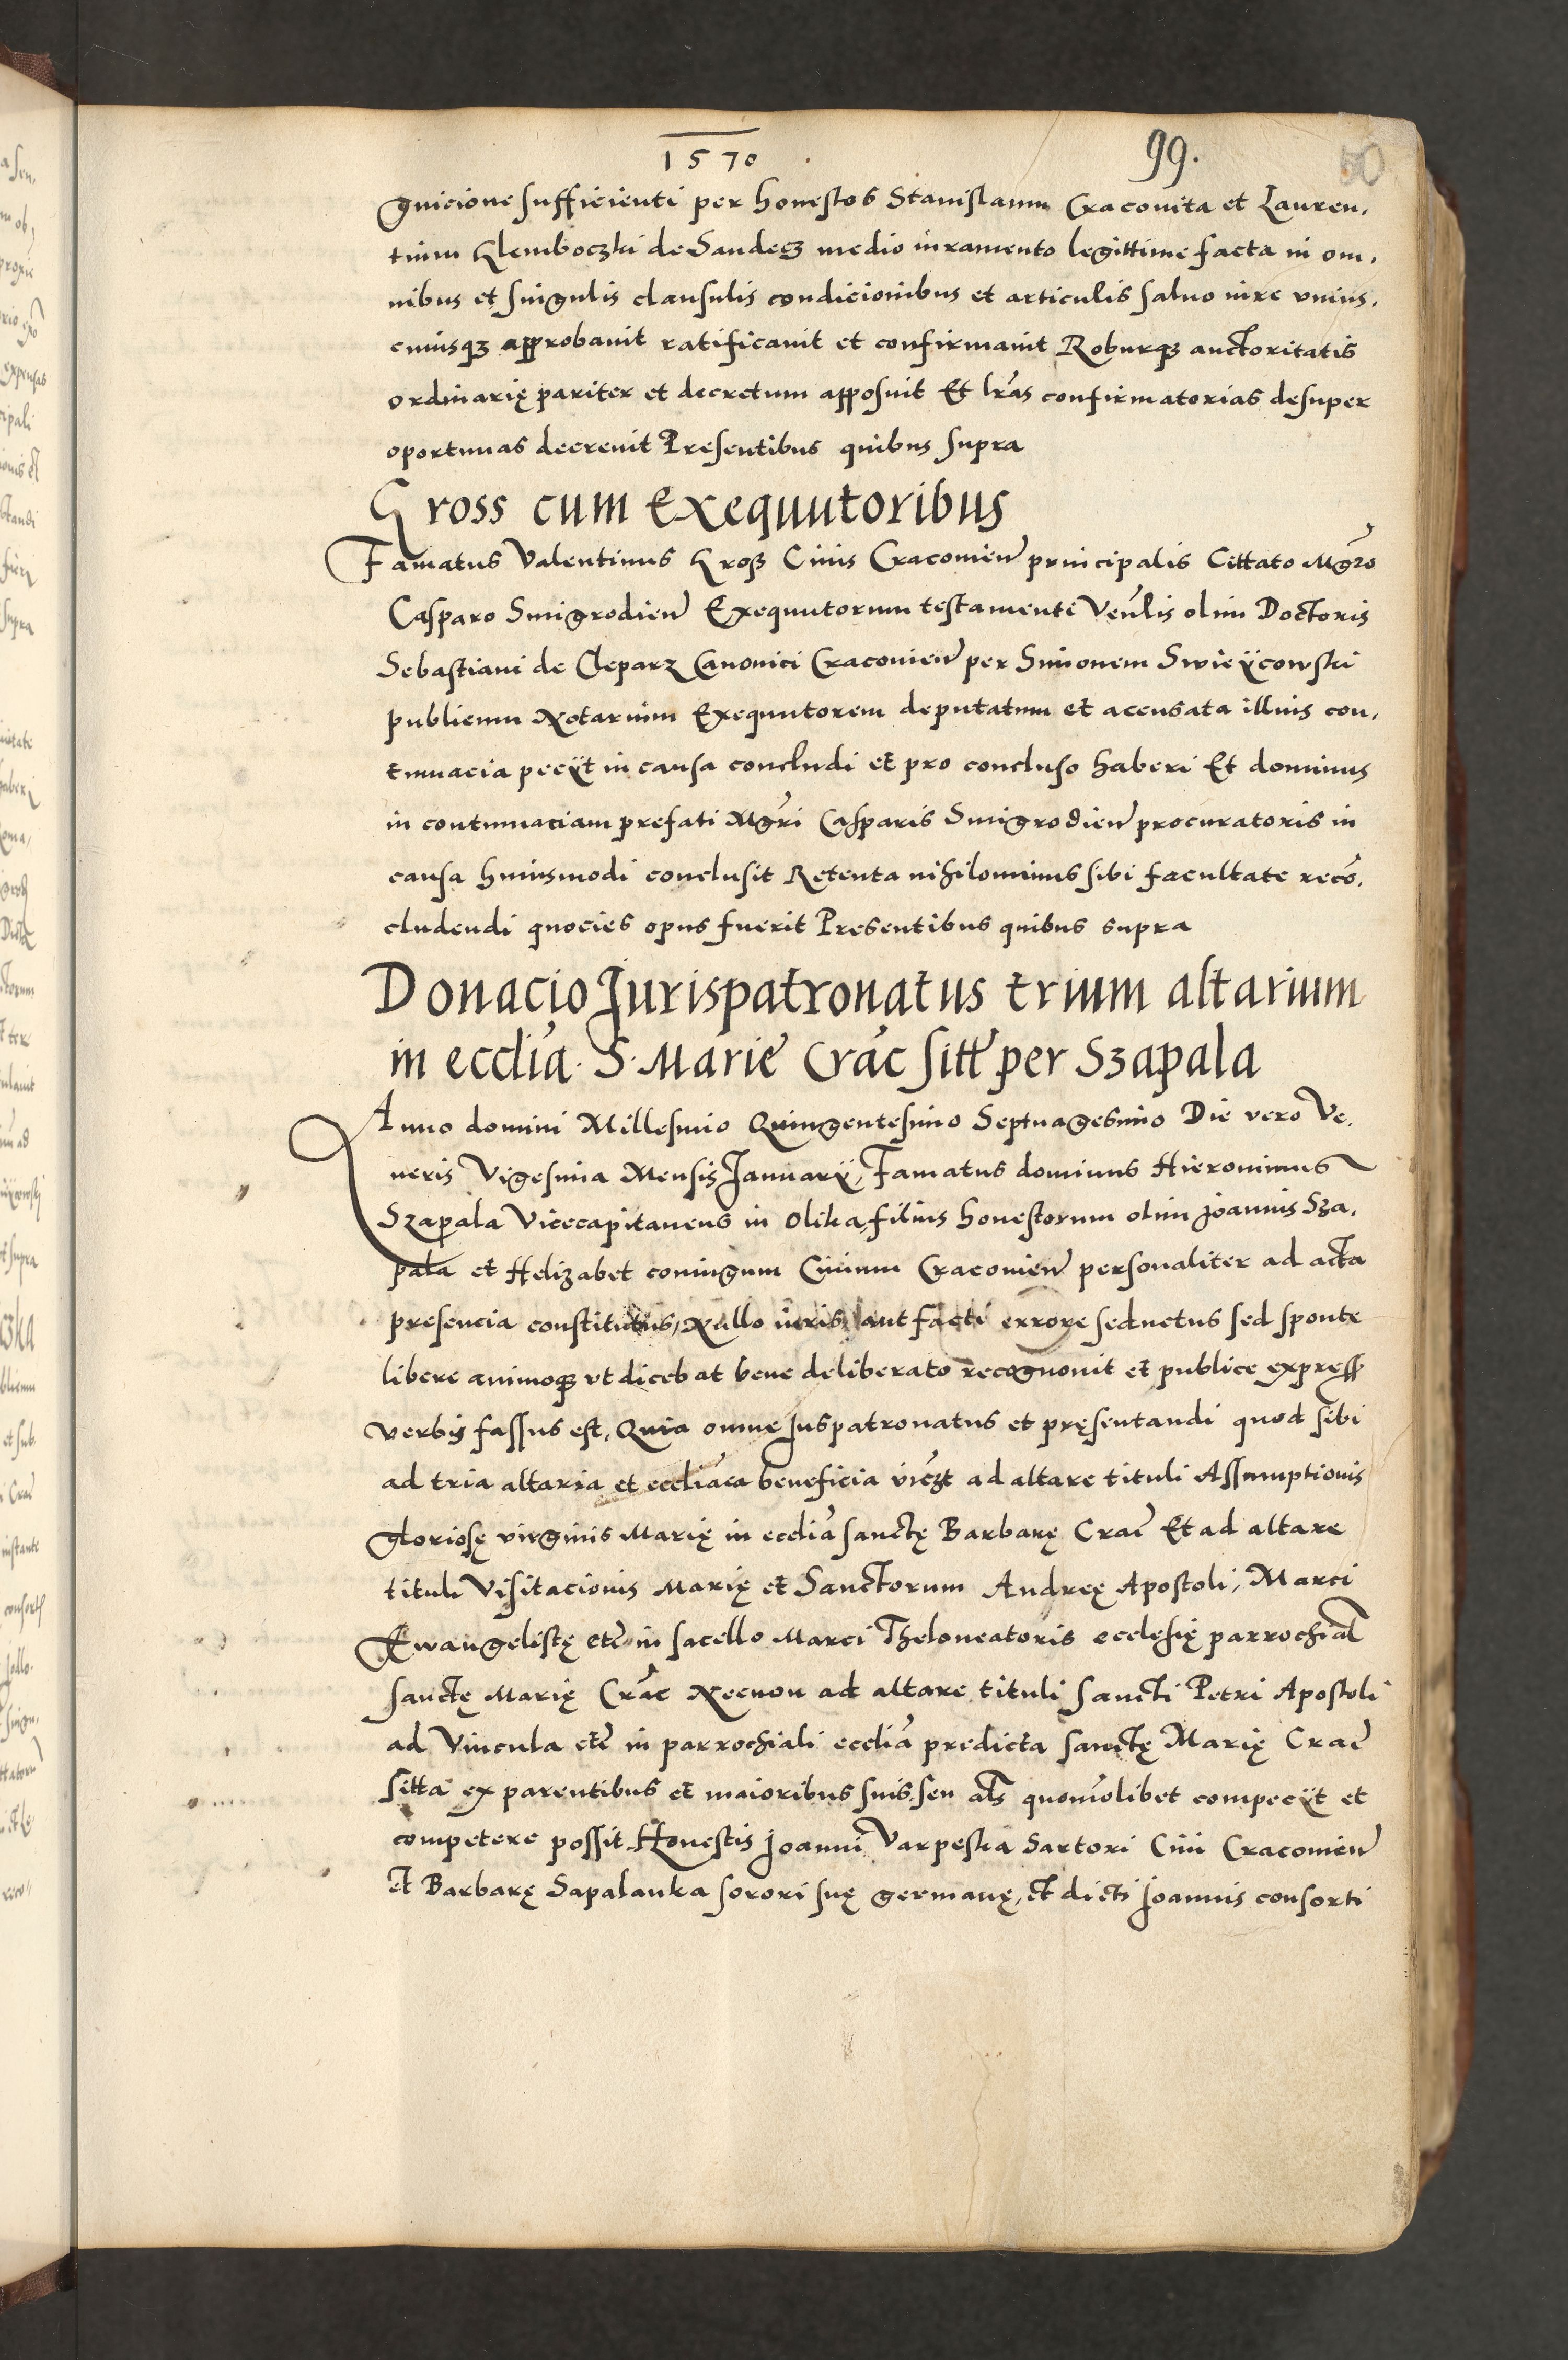 1570 99. 60
gnicione sufficienti per honestos Stanislaum Cracovita et Lauren,
tium Klemboczki de Sandecz medio iuramento legittime facta in om,
nibus et singulis clausulis condicionibus et articulis salvo iure unius,
cuiusqȝ approbavit ratificavit et confirmavit Roburqȝ auctoritatis
ordinarię pariter et decretum apposuit Et lr̃as confirmatorias desuper
oportunas decrevit Presentibus quibus supra
Kross cum Exequutoribus
Famatus Valentinus Kross Civis Cracovien̄ principalis Cittato Mgr̃o
Casparo Smigrodien̄ Exequutorum testamenti Veñlis olim Doctoris
Sebastiani de Cleparz Canonici Cracovien̄ per Simonem Swieÿcowski
publicum Notarium Exequutorem deputatum et accusata illius con,
tumacia peciit in causa concludi et pro concluso haberi Et dominus
in contumaciam prefati Mgr̃i Casparis Smigrodien̄ procuratoris in
causa huiusmodi conclusit Retenta nihilominus sibi facultate recõ,
cludendi quocies opus fuerit Presentibus quibus supra
Donacio Jurispatronatus trium altarium
in ecclia. S. Marie Crac̃ sitt̃ per Szapala
Anno domini Millesimo Quingentesimo Septuagesimo Die vero Ve,
neris Vigesima Mensis Januarÿ, Famatus dominus Hieronimus
Szapala Vicecapitaneus in Olika, filius honestorum olim Joannis Sza,
pala et Helizabet coniugum Civium Cracovien̄ personaliter ad acta
presencia constitutus, Nullo iuris aut facti errore seductus sed sponte
libere animoqȝ ut dicebat bene deliberato recognovit et publice express̃
verbis fassus est, Quia omne Juspatronatus et pręsentandi quod sibi
ad tria altaria et eccliãca beneficia vicȝt ad altare tituli Assumptionis
gloriosę virginis Marię in ecclia sanctę Barbarę Crac̃ Et ad altare
tituli Visitacionis Marię et Sanctorum Andreę Apostoli, Marci
Ewangelistę etc̃ in sacello Marci Theloneatoris ecclesię parrochial̃
sanctę Marię Crac̃ Necnon ad altare tituli Sancti Petri Apostoli
ad Vincula etc̃ in parrochiali ecclia predicta sanctę Marię Crac̃
sitta ex parentibus et maioribus suis, seu al̃s quomõlibet compeciit et
competere possit Honestis Joanni Varpeska Sartori Civi Cracovien̄
et Barbarę Sapalanka sorori suę germanę, et dicti Joannis consorti